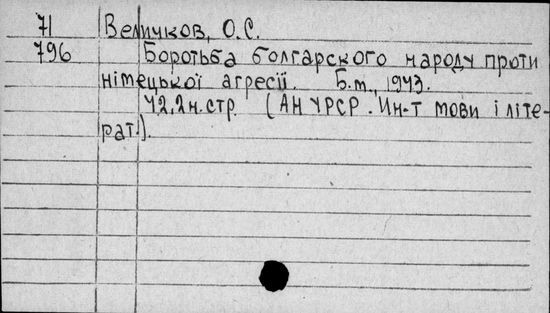 71 Величков, О.С.
796 Боротьба болгарского народу проти
німецької агресії. Б.м., 1943.
42,2н.стр. (АН УРСР. Ин-т мови і літе-
рат.).